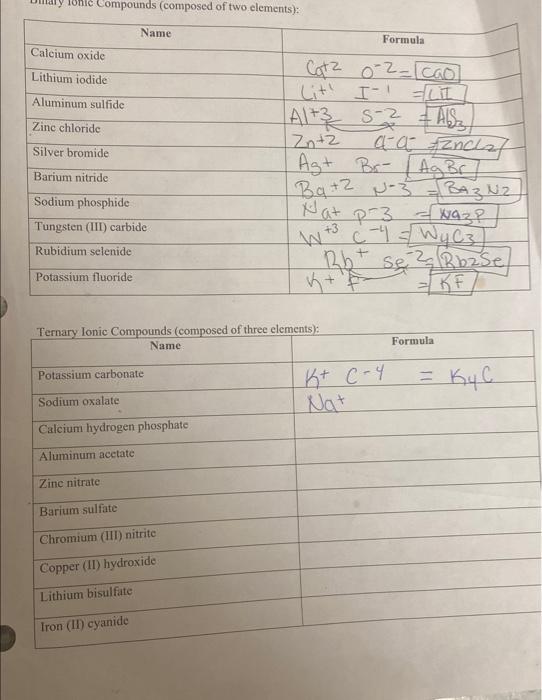 Binary Ionic Compounds (composed of two elements):
Name Formula
Calcium oxide Ca+2 O-2 = CaO
Lithium iodide Li+1 I-1 = LiI
Aluminum sulfide Al+3 S-2 =
Zinc chloride Zn+2 Cl- Cl- = ZnCl2
Silver bromide Ag+ Br- AgBr
Barium nitride Ba+2 N-3 = BA3N2
Sodium phosphide Na+ P-3 = Na3P
Tungsten (III) carbide W+3 C-4 = W4C3
Rubidium selenide Rb+ Se-2 = Rb2Se
Potassium fluoride K+ F- = KF
Ternary Ionic Compounds (composed of three elements):
Name Formula
Potassium carbonate K+ C-4 = K4C
Sodium oxalate Na+
Calcium hydrogen phosphate
Aluminum acetate
Zinc nitrate
Barium sulfate
Chromium (III) nitrite
Copper (II) hydroxide
Lithium bisulfate
Iron (II) cyanide